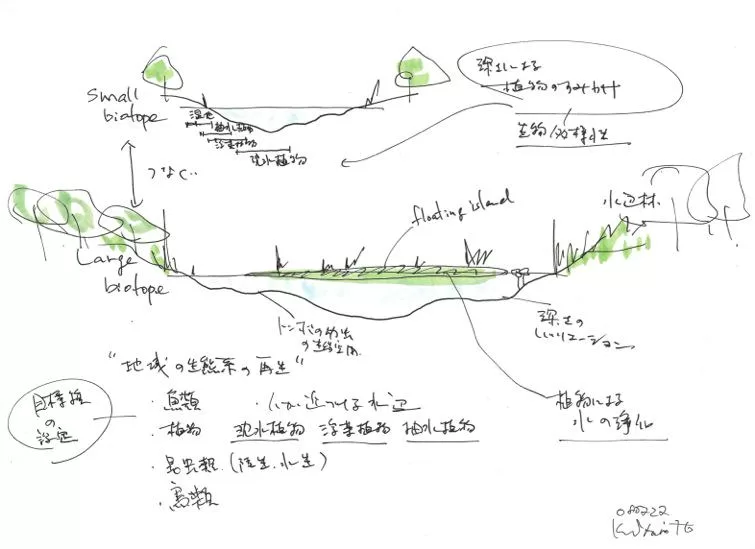 small
biotope
深さによる
植物のすみわけ
生物多様性
湿生
抽水植物
浮葉植物
沈水植物
つなぐ..
floating island
水辺林
Large
biotope
トンボの幼虫
の生息空間
深さの
バリエーション
"地域の生態系の再生"
目標種
の
設定
・魚類
・人が近づける水辺
・植物 沈水植物 浮葉植物 抽水植物
・昆虫類.(陸生.水生)
・鳥類
植物による
水の浄化
080222